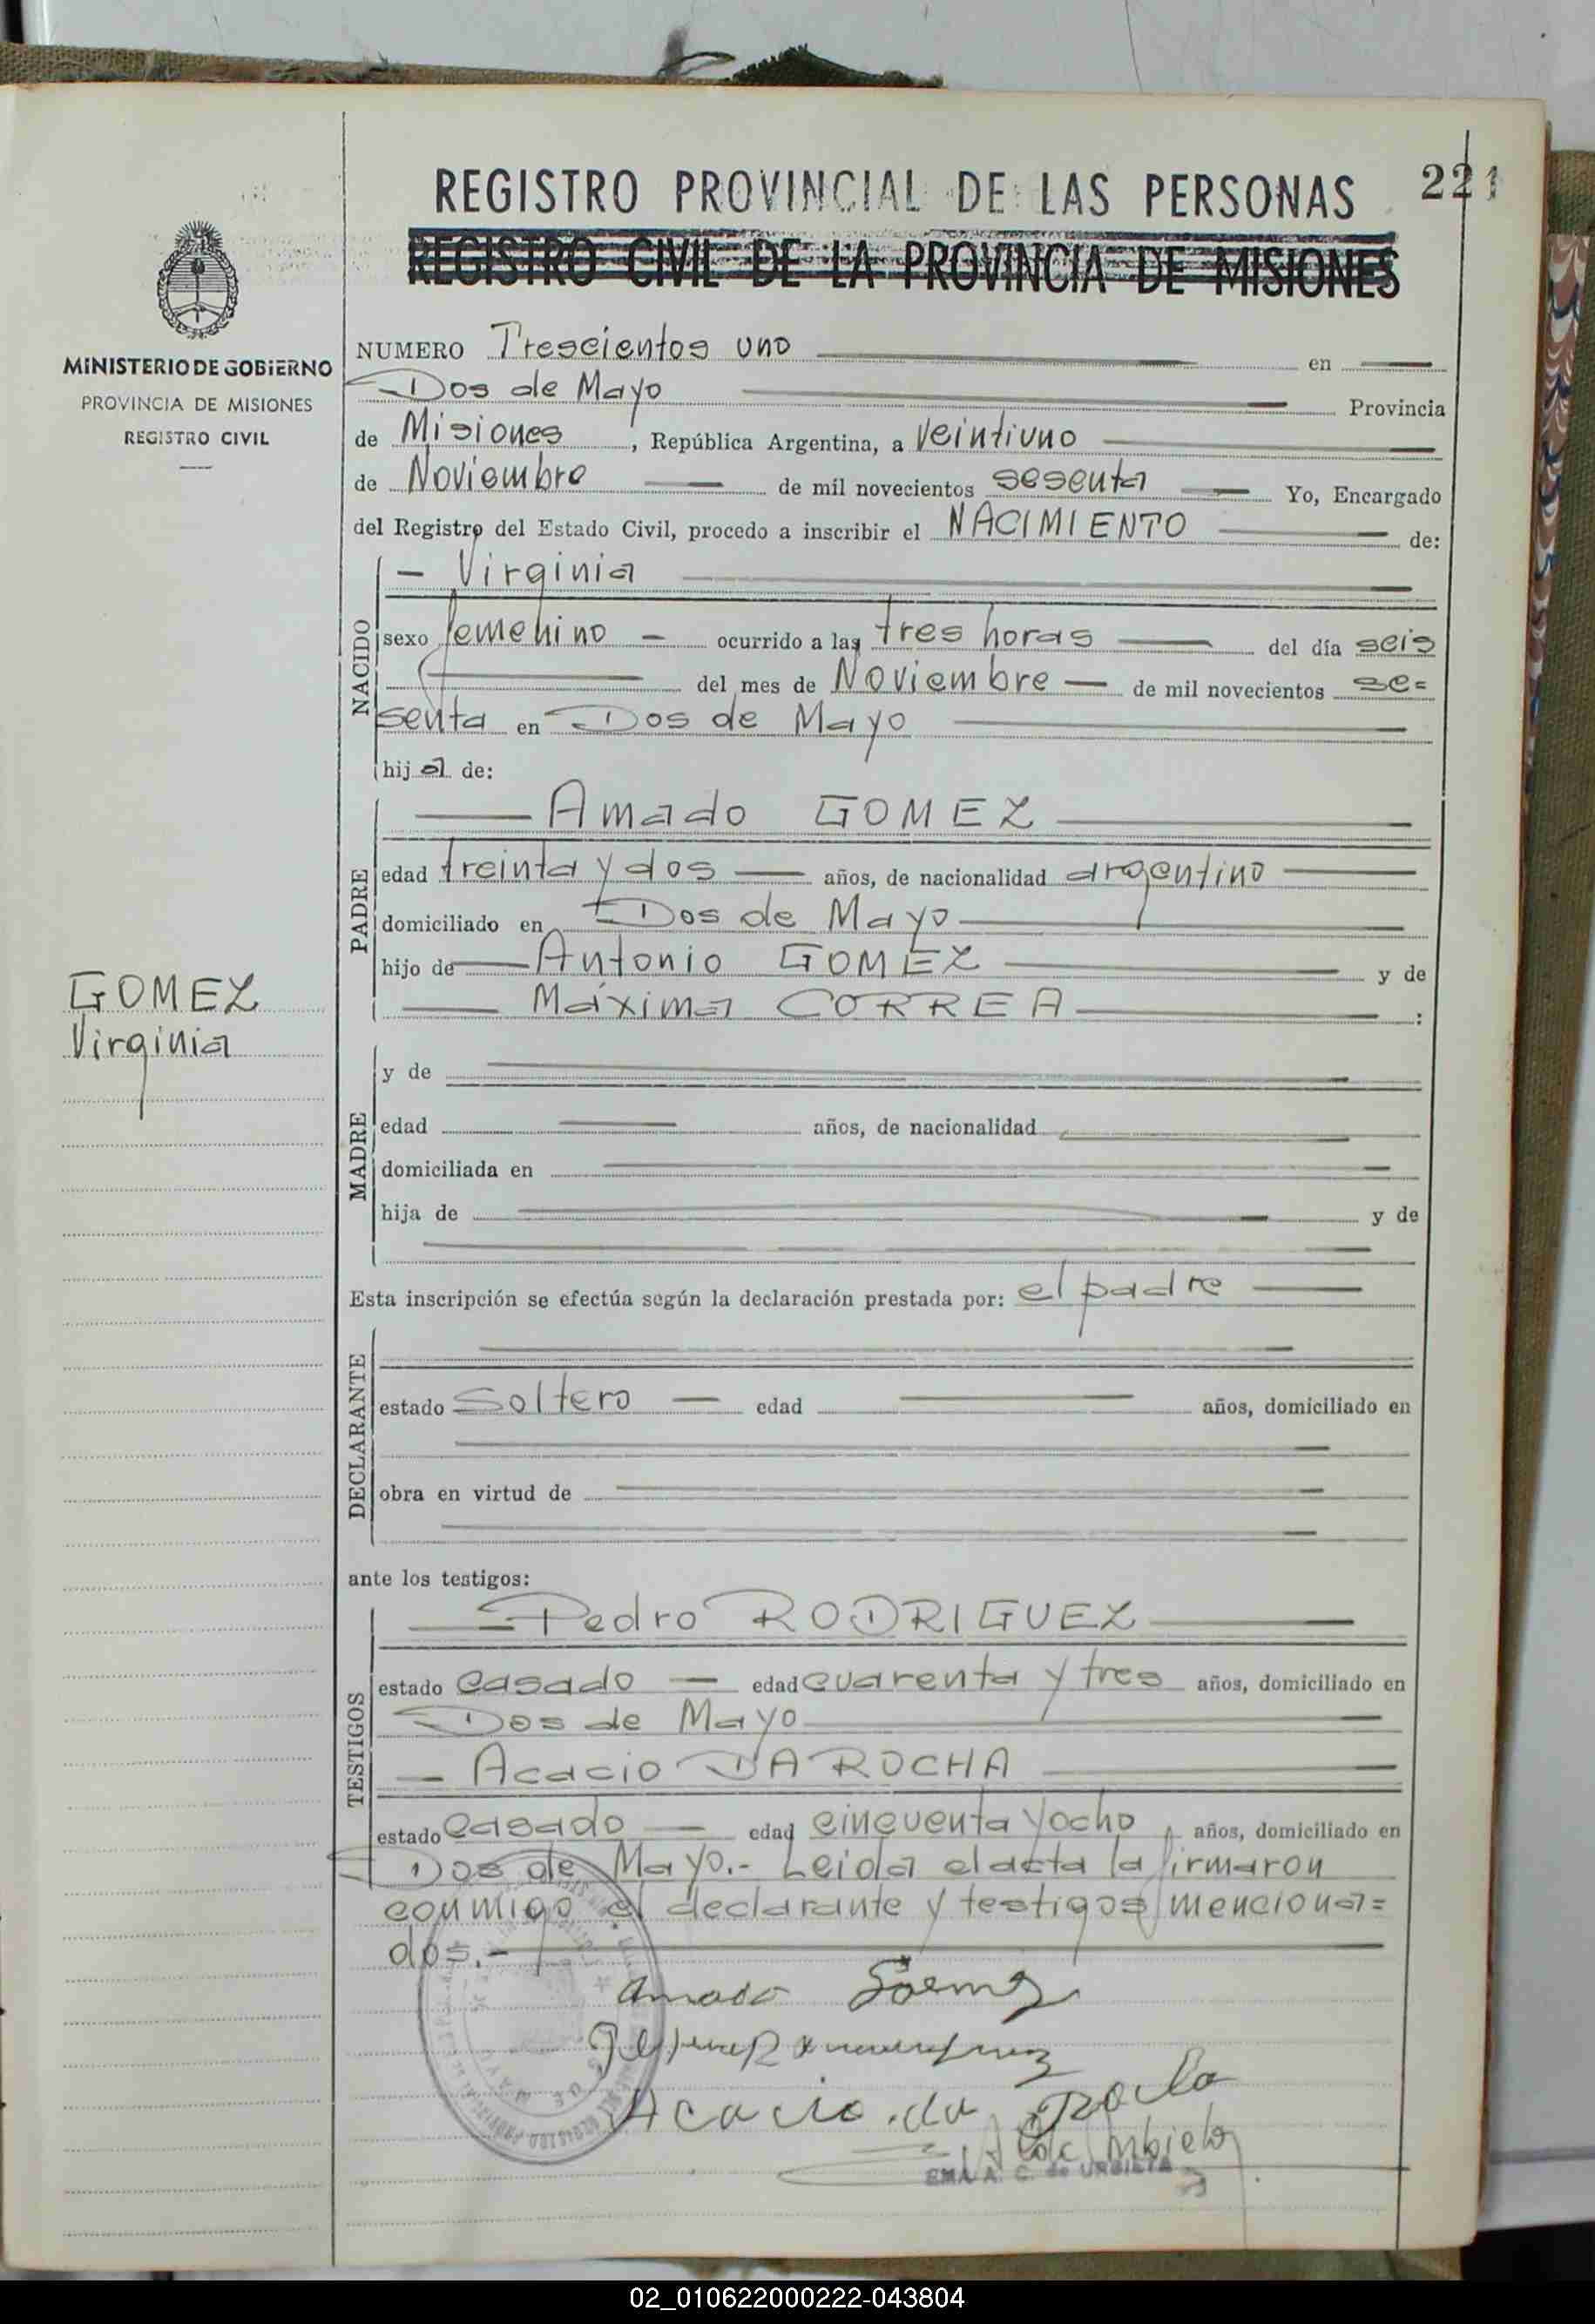 REGISTRO PROVINCIAL DE LAS PERSONAS
221
REGISTRO CIVIL DE LA PROVINCIA DE MISIONES
MINISTERIO DE GOBIERNO
PROVINCIA DE MISIONES
REGISTRO CIVIL
NUMERO Trescientos uno en
Dos de Mayo Provincia
de Misiones, República Argentina, a veintiuno
de Noviembre de mil novecientos sesenta Yo, Encargado
del Registro del Estado Civil, procedo a inscribir el NACIMIENTO de:
NACIDO
- Virginia
sexo femenino - ocurrido a las tres horas del día seis
del mes de Noviembre - de mil novecientos se=
senta en Dos de Mayo
hija de:
PADRE
Amado GOMEZ
edad treinta y dos años, de nacionalidad argentino
domiciliado en Dos de Mayo
hijo de Antonio GOMEZ y de
Máxima CORREA :
GOMEZ
Virginia
MADRE
y de
edad años, de nacionalidad
domiciliada en
hija de y de
Esta inscripción se efectúa según la declaración prestada por: el padre
DECLARANTE
estado Soltero - edad años, domiciliado en
obra en virtud de
ante los testigos:
TESTIGOS
Pedro RODRIGUEZ
estado casado - edad cuarenta y tres años, domiciliado en
Dos de Mayo
- Acacio DA ROCHA
estado casado - edad cincuenta y ocho años, domiciliado en
Dos de Mayo.- Leida el acta la firmaron
conmigo el declarante y testigos menciona=
dos.-
Amado Goemz
Acacio da Rocha
EMA A. C. de URBIETA
02_010622000222-043804